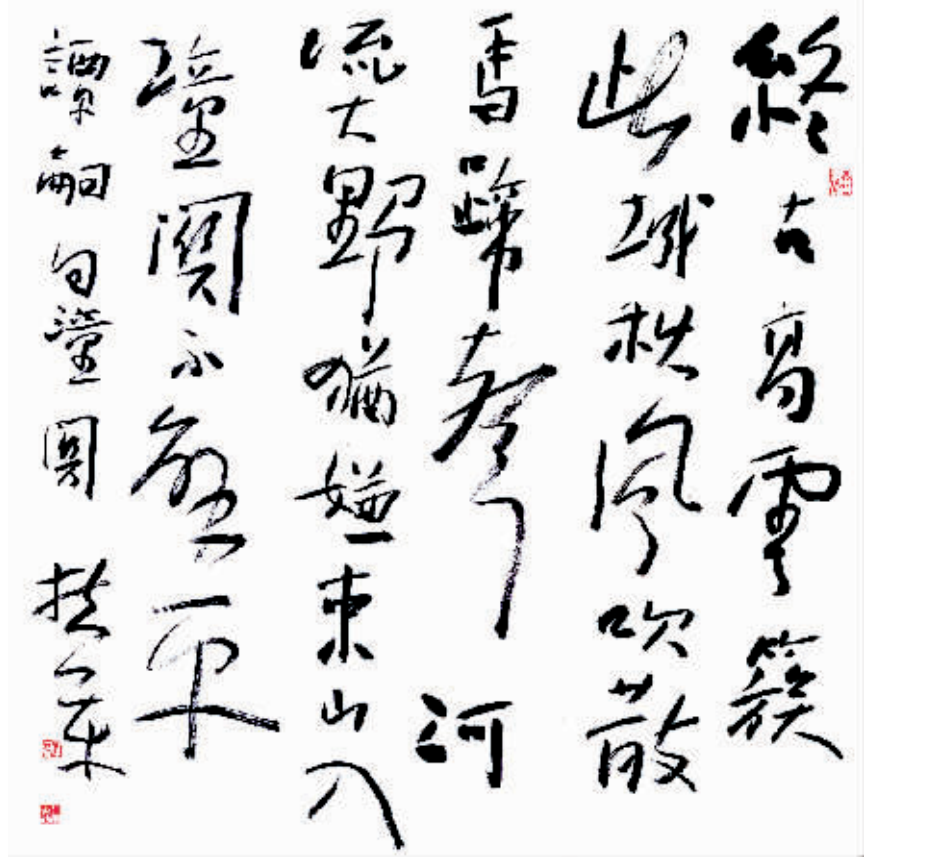 終古高雲簇
此城秋風吹散
馬蹄聲河
流大野猶嫌束山入
潼關不解平
譚嗣句潼關扶